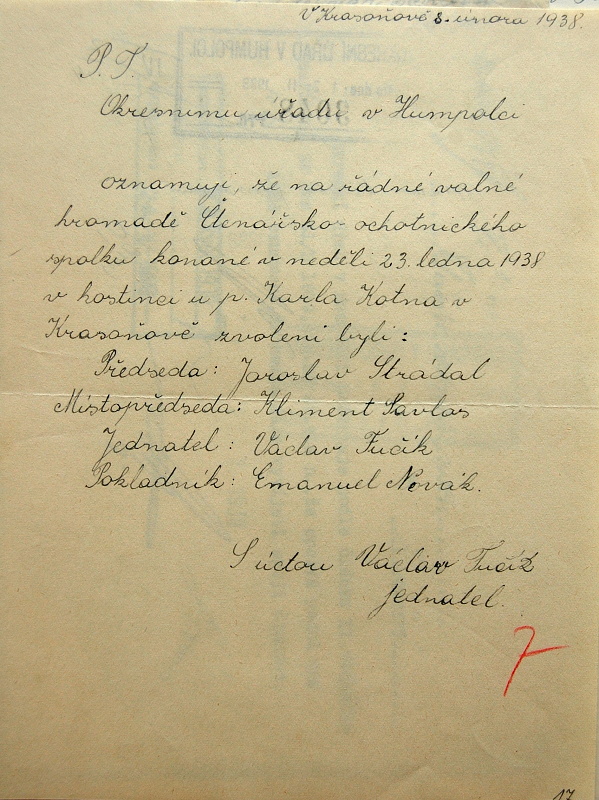 V Krasoňově 8. února 1938.
P. T.
Okresnímu úřadu v Humpolci
oznamuji, že na řádné valné
hromadě Čtenářsko-ochotnického
spolku konané v neděli 23. ledna 1938
v hostinci u p. Karla Kotna v
Krasoňově zvoleni byli:
Předseda: Jaroslav Strádal
Místopředseda: Kliment Pavlas
Jednatel: Václav Fučík
Pokladník: Emanuel Novák.
S úctou Václav Fučík
jednatel.
7
17